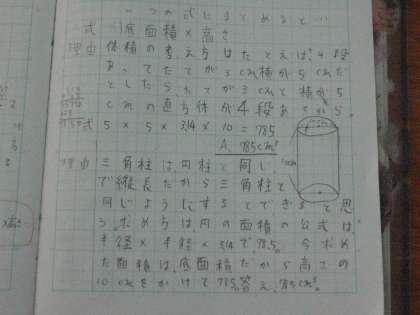 一つの式にまとめると…
式 底面積×高さ
理由 体積の考え方はたとえば、4段
あってたてが3cm横が5cmだ
としたらたてが3cmと横が5
cmの直方体が4段あるから。
式 5×5×3.14×10=785
A. 785cm³
理由 三角柱は、円柱と同じ
で縦長だから三角柱と
同じようにするとできると思
う。求め方は円の面積の公式は、
半径×半径×3.14で78.5。今求め
た面積は、底面積だから高さの
10cmをかけて785。答え、785cm³。
10cm